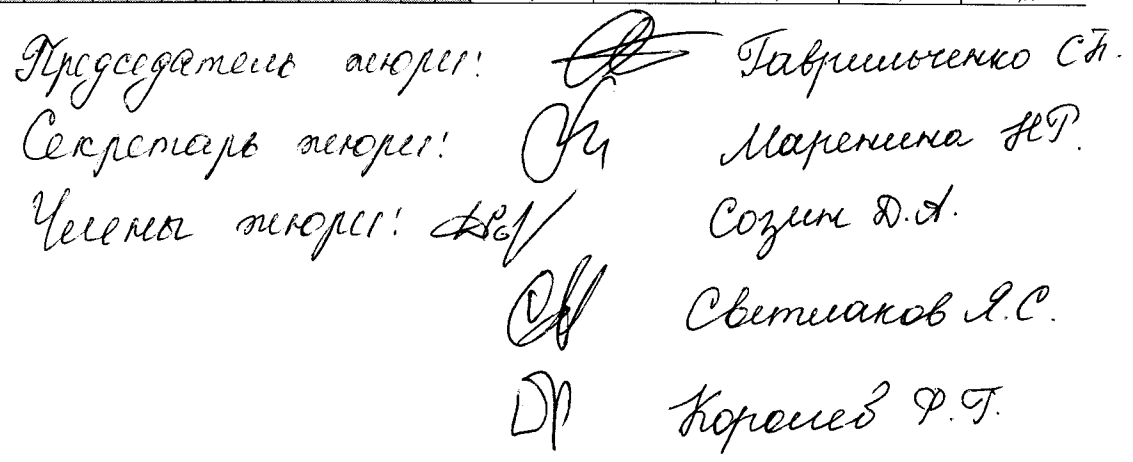 Председатель жюри: Гаврильченко С.П.
Секретарь жюри: Маренина Н.Г.
Члены жюри: Созин Д.А.
Светлаков Я.С.
Королев Ф.Г.